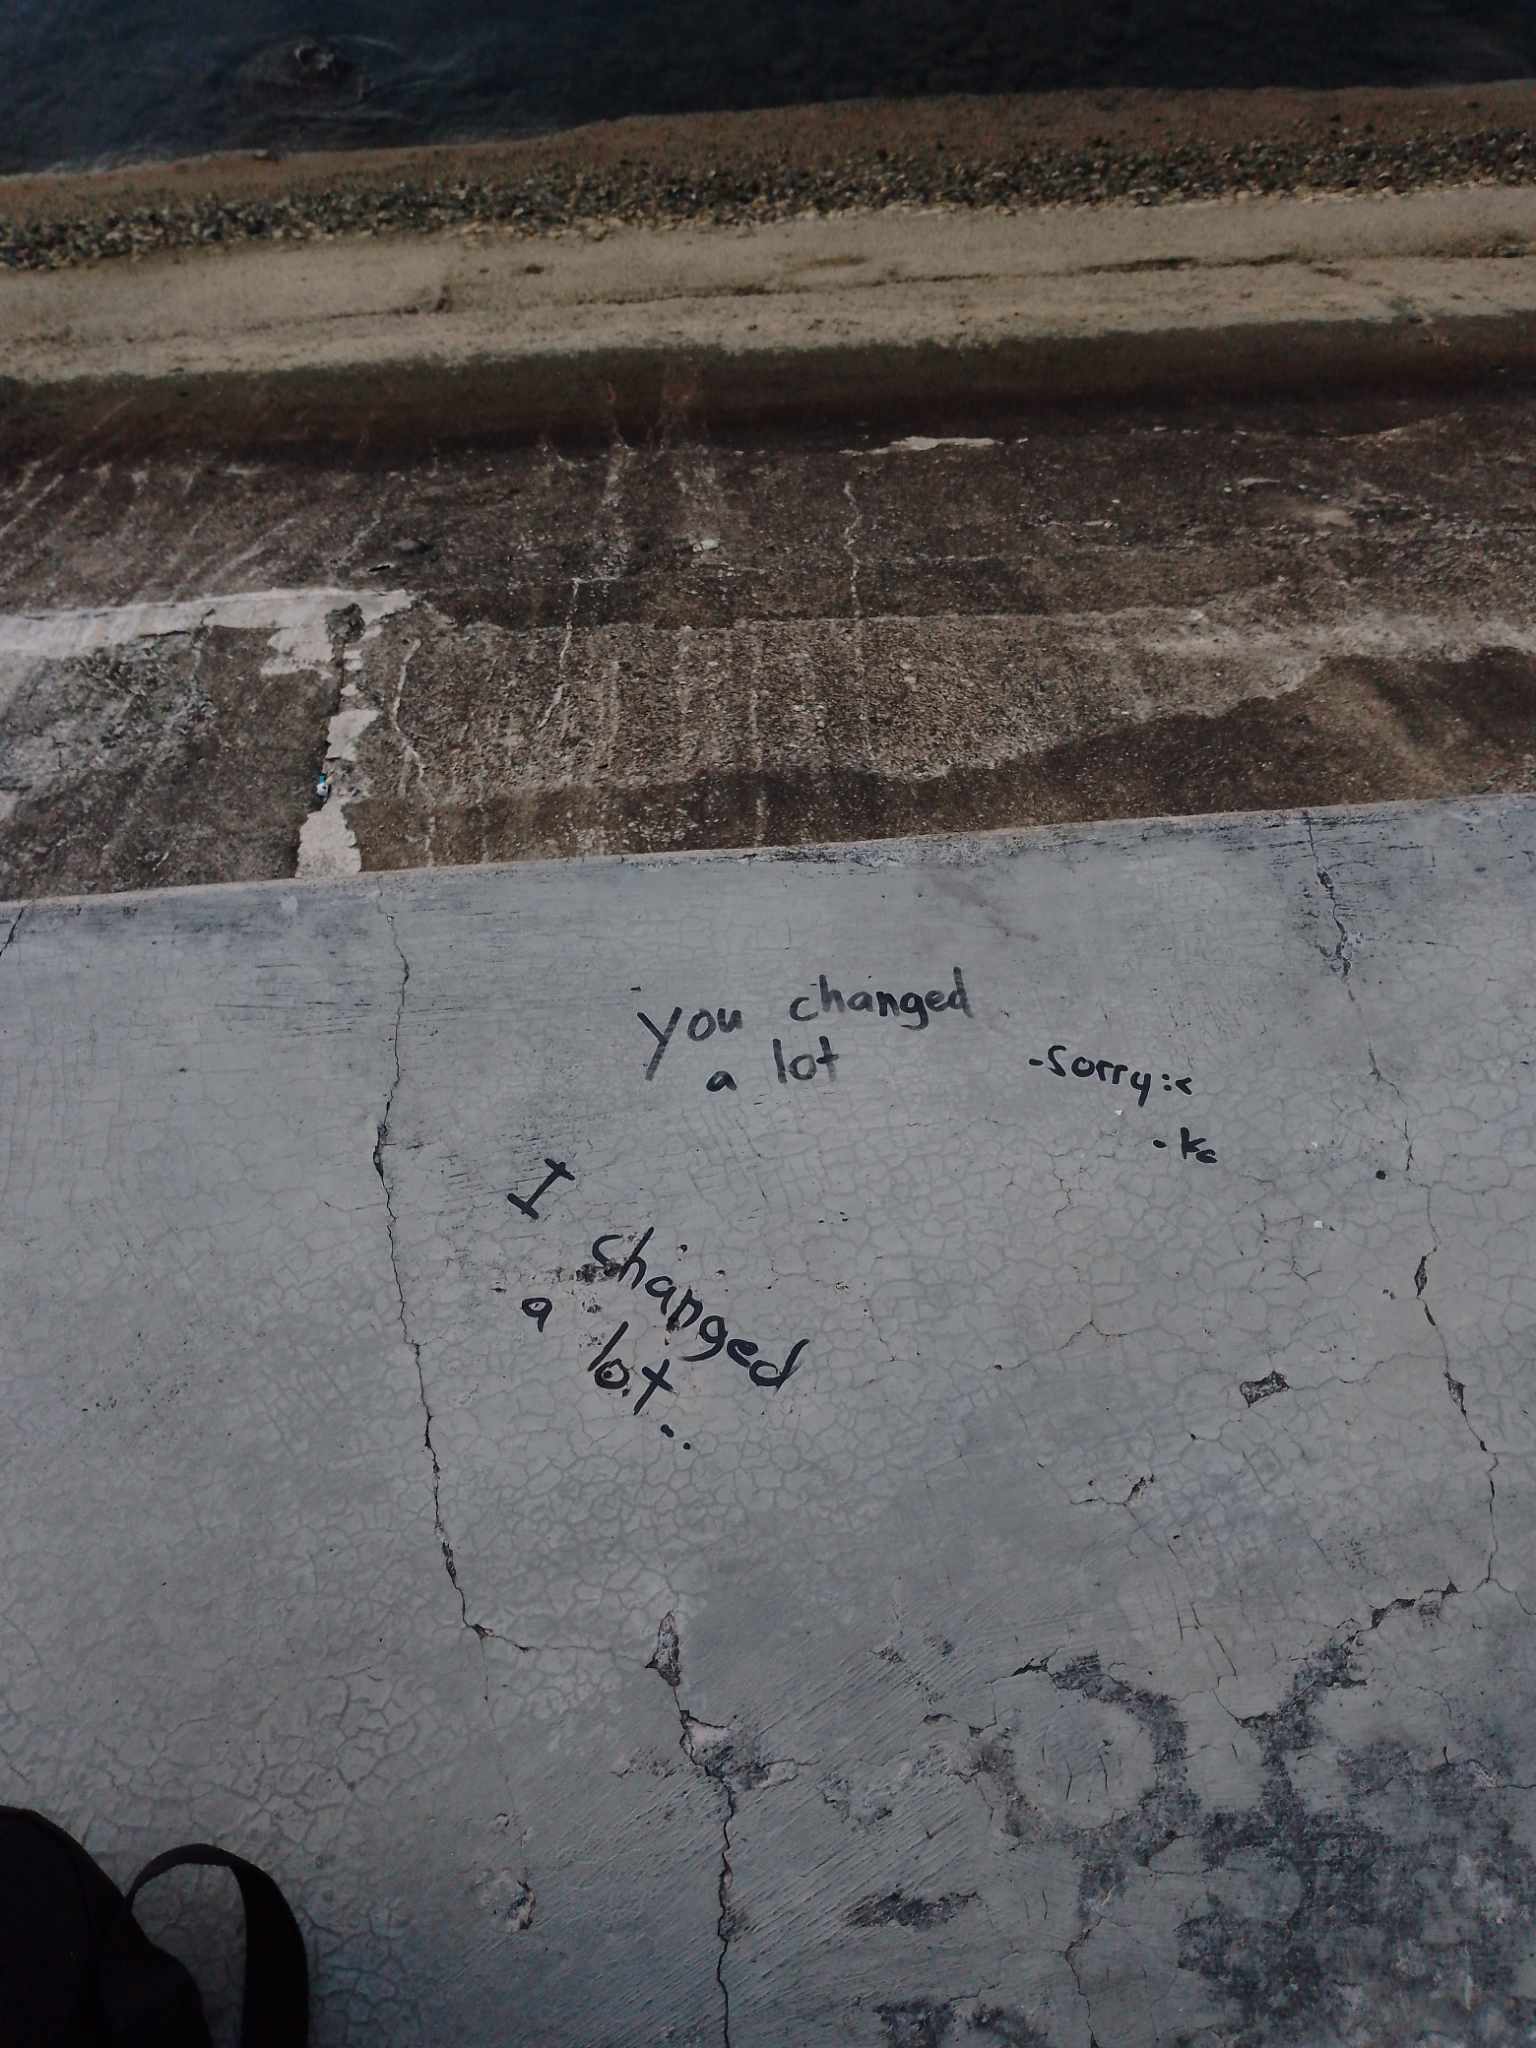 you changed
a lot
-Sorry:<
- kc
I changed
a lot...